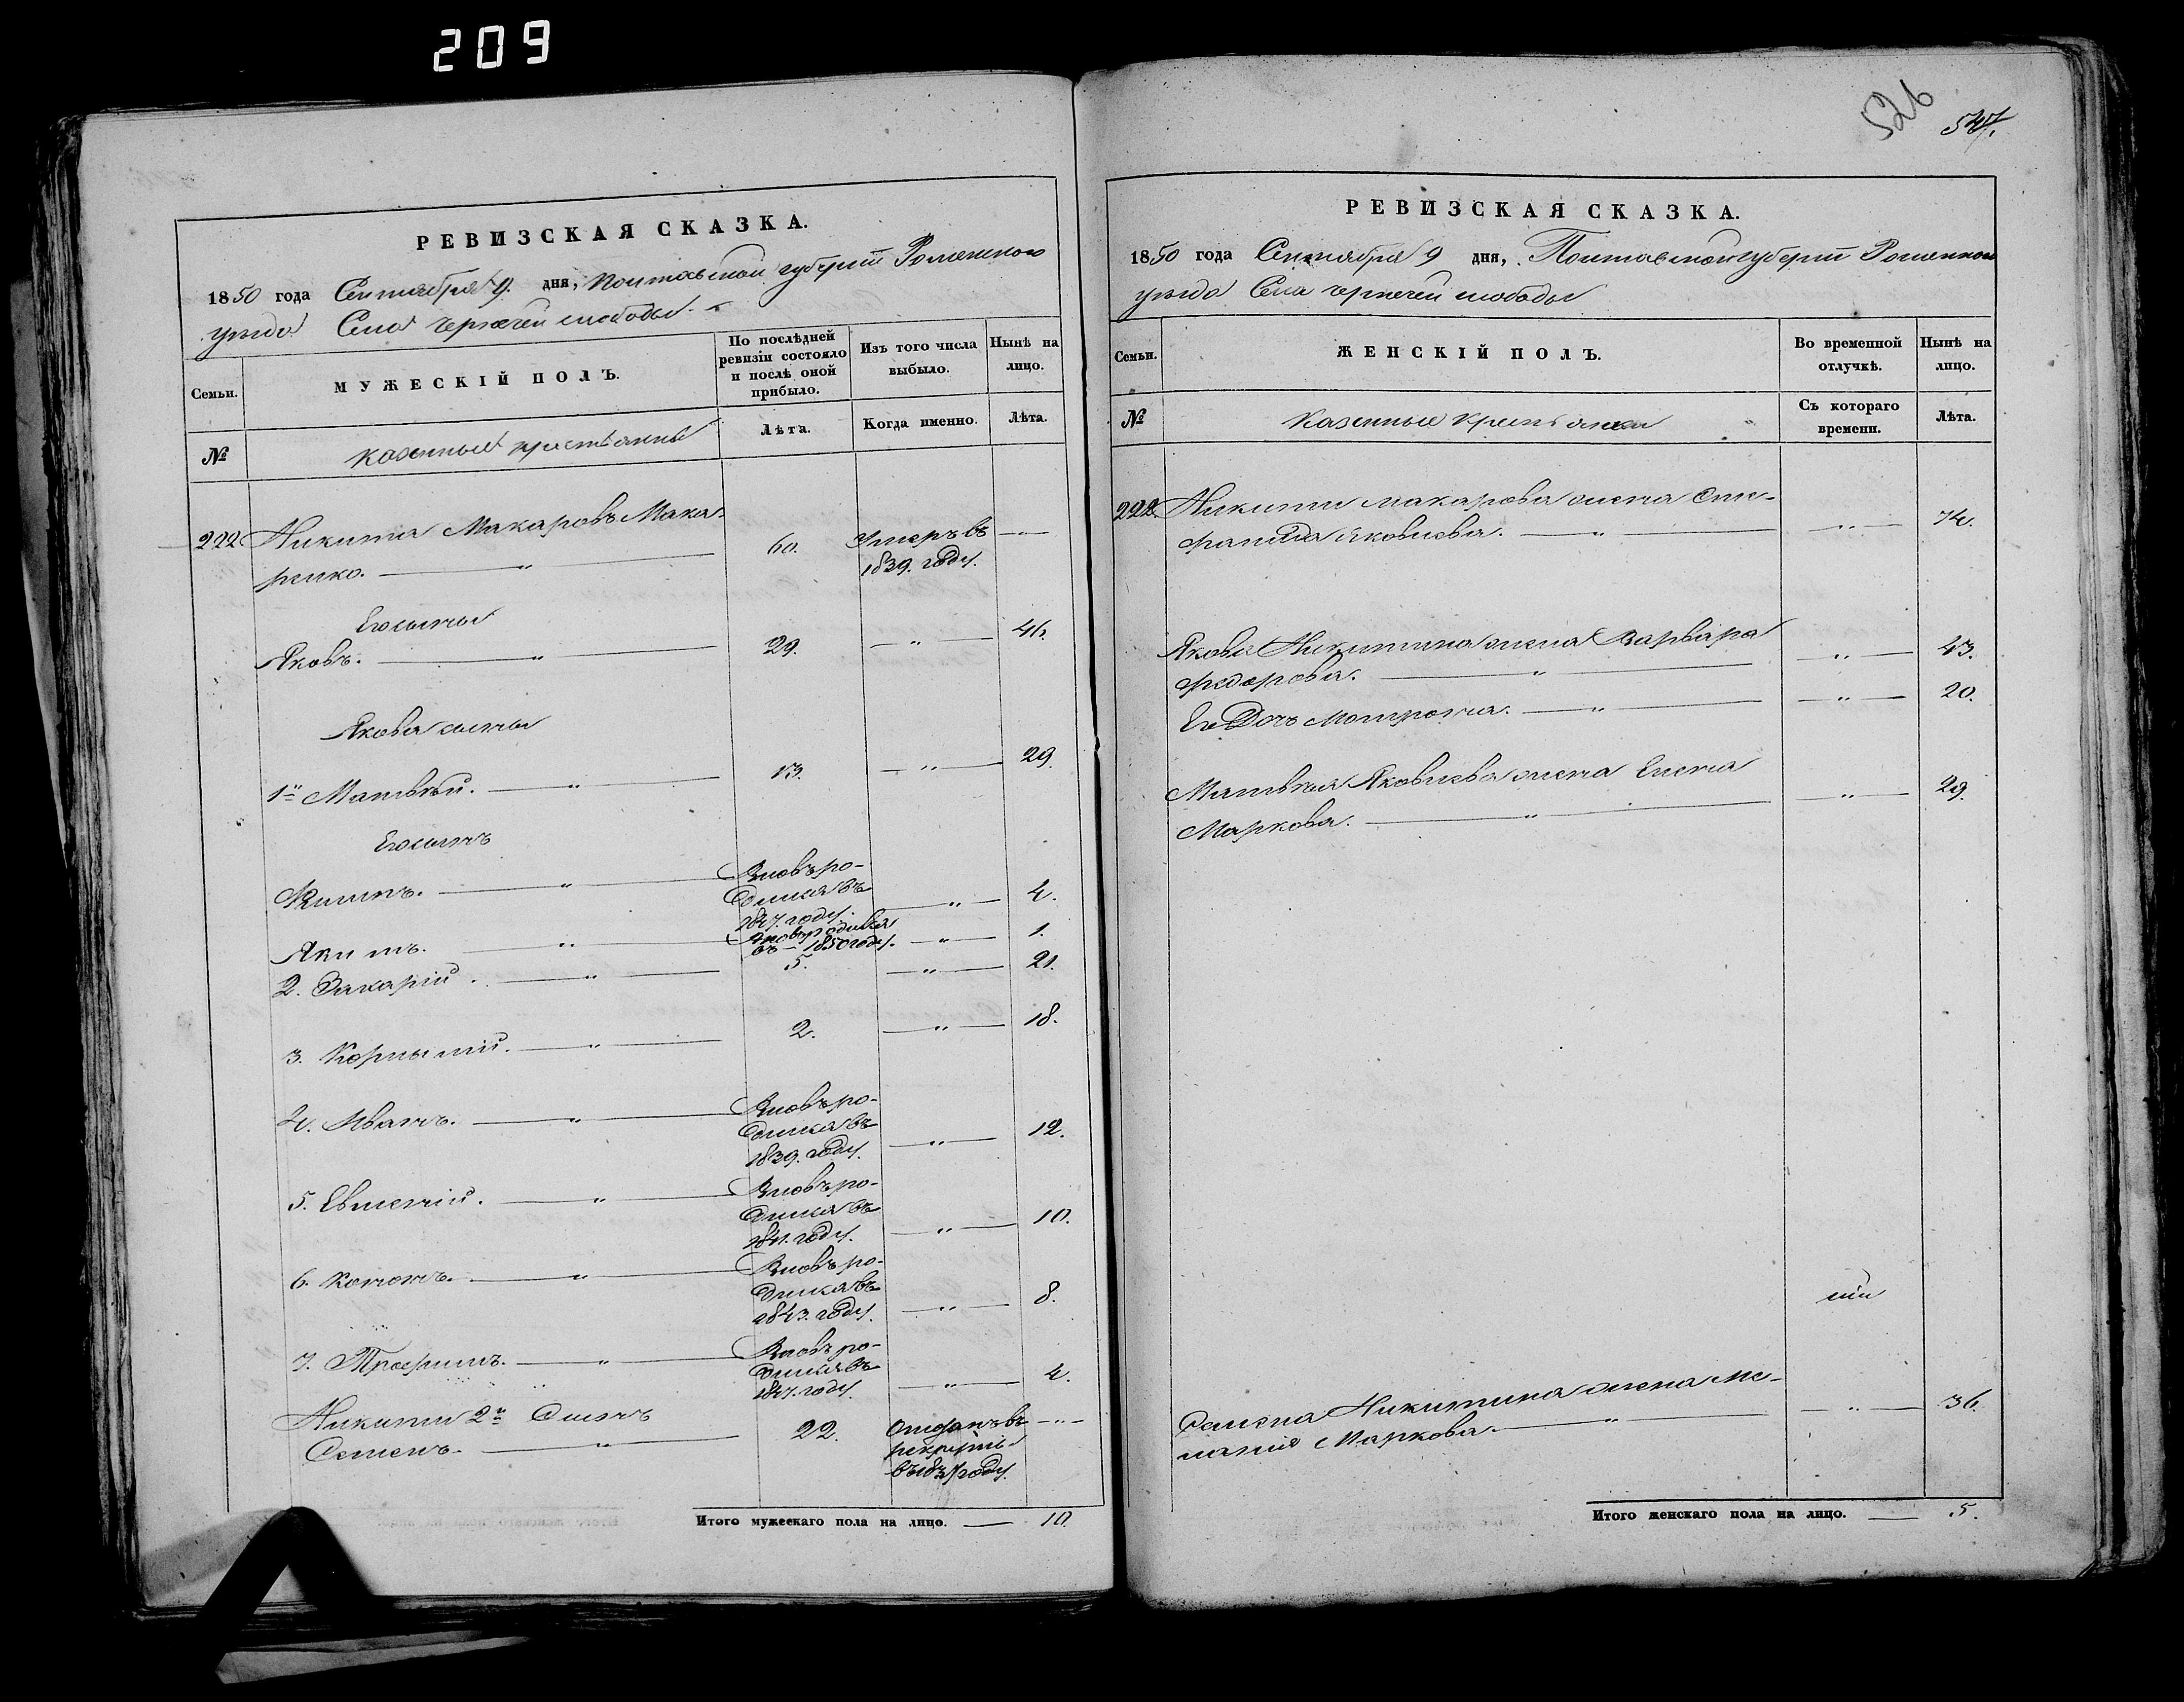 209
РЕВИЗСКАЯ СКАЗКА.
1850 года Сентября 9. дня, Полтавской губерніи Роменского
уезда Села Чернечей слободы.
Семьи.
МУЖЕСКІЙ ПОЛЪ.
По послѣдней
ревизіи состояло
и послѣ оной
прибыло.
Изъ того числа
выбыло.
Нынѣ на
лицо.
№
казенные крестьяне
Лѣта.
Когда именно.
Лѣта.
222 Никита Макаровъ Мака-
ренко. — " — 60. Умеръ въ — " —
1839. году.
Его сыны
Яковъ. — " — 29. — " — 46.
Якова сыны
1й Матвѣй. — " — 13. — " — 29.
Его сынъ
Вновь ро-
Филипъ. — " — дился въ — " — 4.
1847. году.
Вновь родился
Яки мъ. — " — въ — 1850 году. — " — 1.
2. Захарій. — " — 5. — " — 21.
3. Корнылій. — " — 2. — " — 18.
4. Иванъ. — " — Вновь ро-
дился въ — " — 12.
1839. году.
5. Евменій. — " — Вновь ро-
дился въ — " — 10.
1841. году.
6. Кононъ. — " — Вновь ро-
дился въ
1843. году. — " — 8.
7. Трофимъ. — " — Вновь ро-
дился въ
1847. году. — " — 4.
Никиты 2й Сынъ
Семенъ. — " — 22. Отданъ въ — " —
рекруты
въ 1837 году.
Итого мужескаго пола на лицо. — 10.
526
547.
РЕВИЗСКАЯ СКАЗКА.
1850 года Сентября 9 дня, Полтавской губерніи Роменского
уезда Села Чернечей слободы
Семьи.
ЖЕНСКІЙ ПОЛЪ.
Во временной
отлучкѣ.
Нынѣ на
лицо.
№
казенные крестьянки
Съ котораго
времени.
Лѣта.
222. Никиты Макарова жена Спи-
ранида Яковлева. — " — — " — 74.
Якова Никитина жена Варвара
Федорова. — " — — " — 43.
Ея Дочь Мотрона. — " — — " — 20.
Матвея Яковлева жена Елена
Маркова. — " — — " — 29.
Семена Никитина жена Ме-
ланія Маркова. — " — — " — 36.
Итого женскаго пола на лицо. — 5.